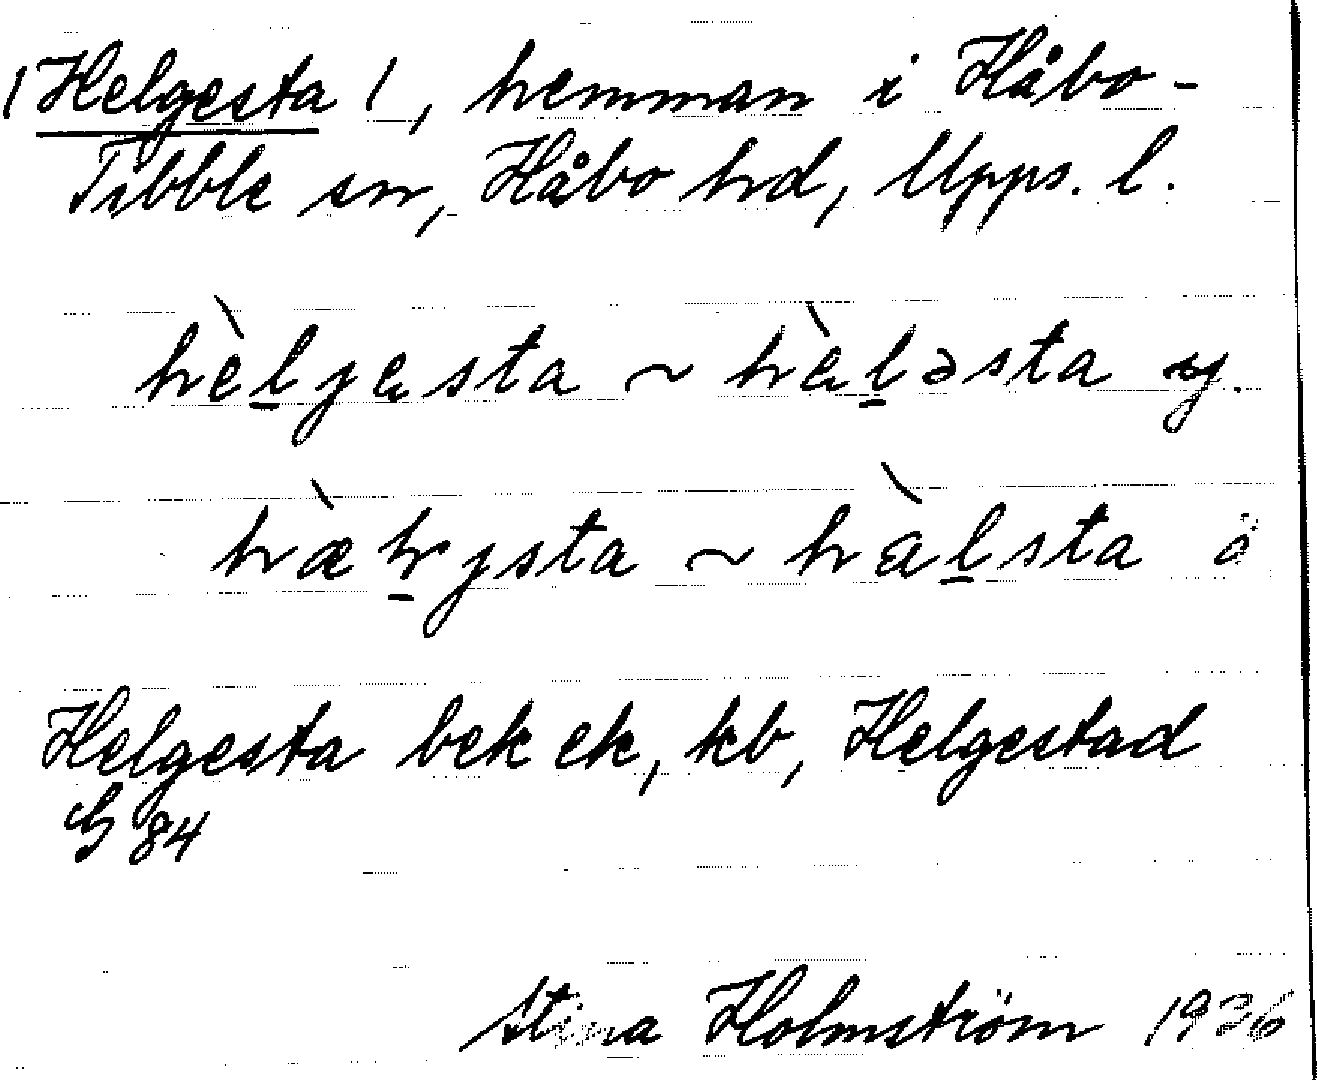 (Helgesta), hemman i Håbo-
Tibble sn, Håbo hd, Upps. l.
hèljesta ~ hèləsta y.
ysta ~ hàlsta ä
Helgesta bek ek, kb, Helgestad
G 84
Stina Holmström 1936